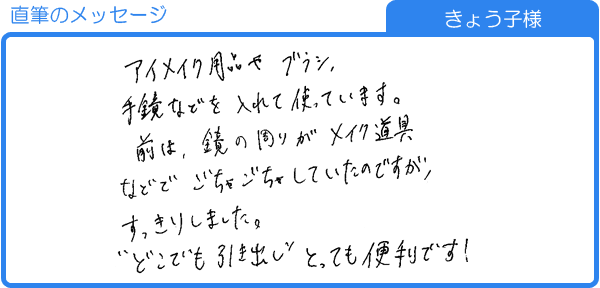 直筆のメッセージ
きょう子様
アイメイク用品や ブラシ、
手鏡などを 入れて使っています。
前は、鏡の周りが メイク道具
などで ごちゃごちゃしていたのですが、
すっきりしました。
"どこでも引き出し" とっても便利です!